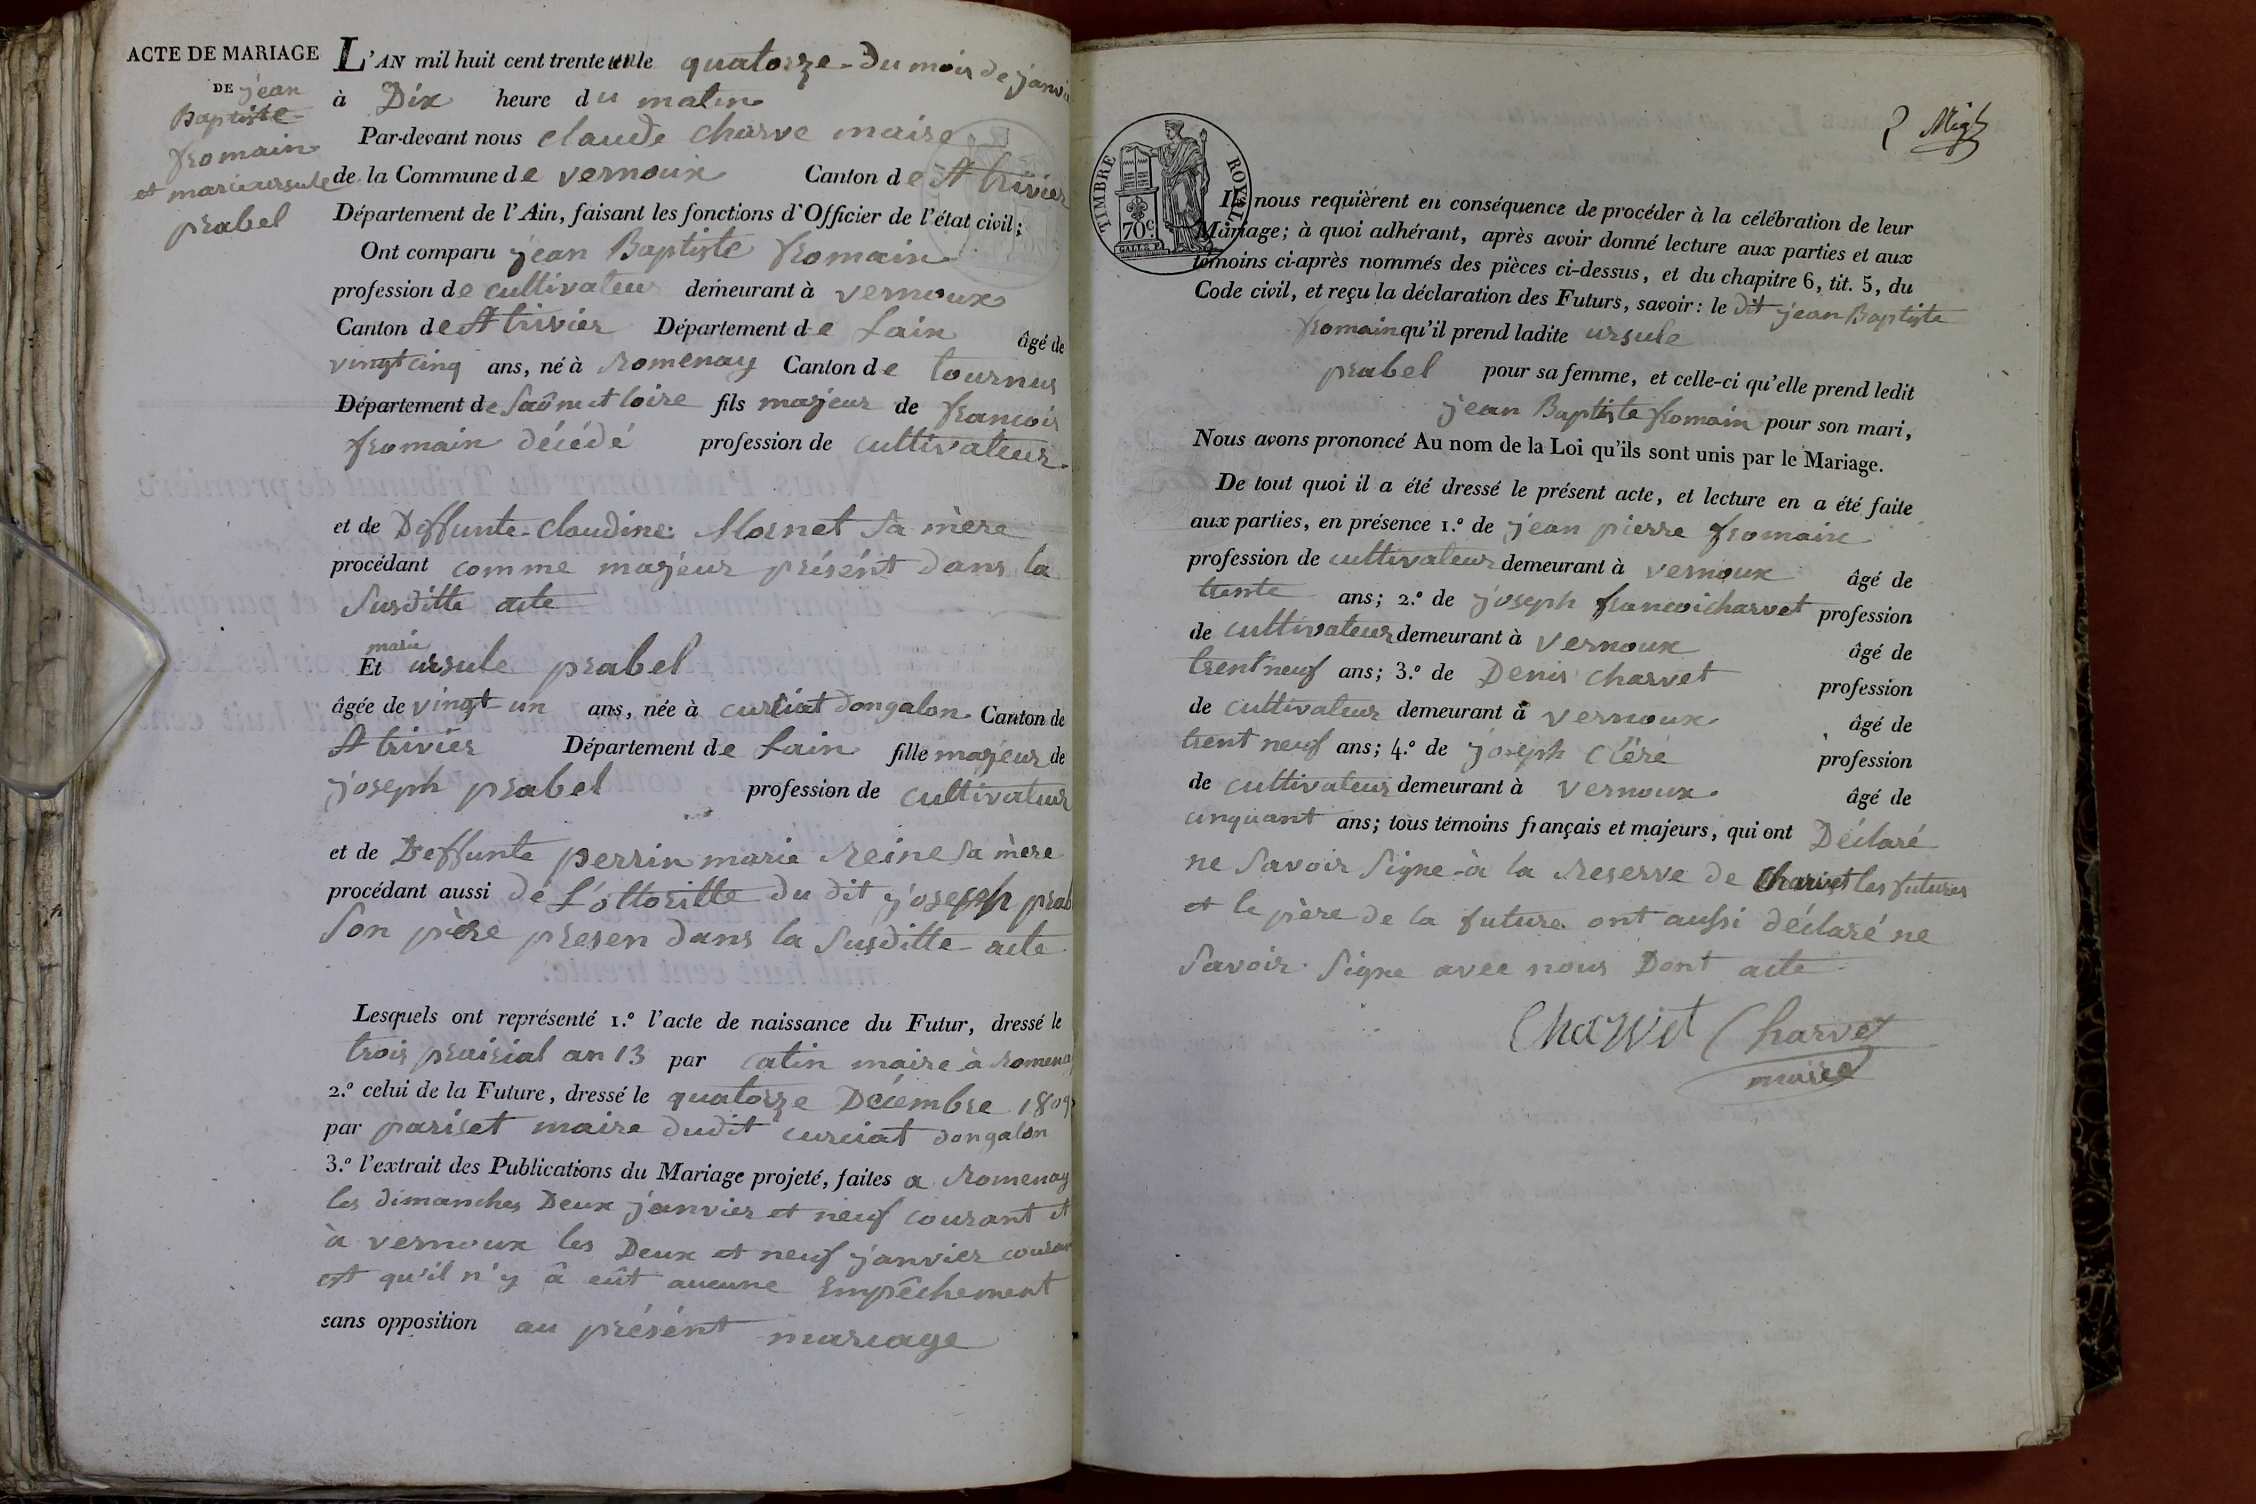 ACTE DE MARIAGE
DE jean
Baptiste
fromain
et marie ursule
prabel
L'AN mil huit cent trente un le quatorze du mois de janvi
à Dix heure du matin
Par-devant nous claude charve maire
de la Commune de vernoux Canton de St trivier
Département de l'Ain, faisant les fonctions d'Officier de l'état civil;
Ont comparu jean Baptiste fromain
profession de cultivateur demeurant à vernoux
Canton de St trivier Département de Lain âgé de
vingt cinq ans, né à romenay Canton de tournus
Département de Saône et loire fils majeur de francois
fromain décédé profession de cultivateur
et de Deffunte claudine Mornet sa mère
procédant comme majeur présent dans la
susditte acte
marie
Et ursule prabel
âgée de vingt un ans, née à curciat dongalon Canton de
St trivier Département de Lain fille majeur de
joseph prabel profession de cultivateur
et de Deffunte perrin marie reine sa mère
procédant aussi de L'ottoritte du dit joseph prab
son père presen dans la susditte acte
Lesquels ont représenté 1.º l'acte de naissance du Futur, dressé le
trois prairial an 13 par catin maire à romena
2.º celui de la Future, dressé le quatorze Décembre 1809
par pariset maire dudit curciat dongalon
3.º l'extrait des Publications du Mariage projeté, faites a romenay
les dimanches Deux janvier et neuf courant et
à vernoux les Deux et neuf janvier couran
et qu'il n'y â eût aucune Empêchement
sans opposition au présent mariage
TIMBRE ROYAL
70c.
Ils nous requièrent en conséquence de procéder à la célébration de leur
Mariage; à quoi adhérant, après avoir donné lecture aux parties et aux
témoins ci-après nommés des pièces ci-dessus, et du chapitre 6, tit. 5, du
Code civil, et reçu la déclaration des Futurs, savoir: le dit jean Baptiste
fromain qu'il prend ladite ursule
prabel pour sa femme, et celle-ci qu'elle prend ledit
jean Baptiste fromain pour son mari,
Nous avons prononcé Au nom de la Loi qu'ils sont unis par le Mariage.
De tout quoi il a été dressé le présent acte, et lecture en a été faite
aux parties, en présence 1.º de jean pierre fromain
profession de cultivateur demeurant à vernoux âgé de
trente ans; 2.º de joseph francoi charvet profession
de cultivateur demeurant à vernoux âgé de
trent neuf ans; 3.º de Denis charvet profession
de cultivateur demeurant à vernoux âgé de
trent neuf ans; 4.º de joseph Cléré profession
de cultivateur demeurant à vernoux âgé de
cinquant ans; tous témoins français et majeurs, qui ont Déclaré
ne savoir signe à la reserve de charvet les futures
et le père de la future ont aussi déclaré ne
savoir signe avec nous Dont acte
Charvet Charvet
maire